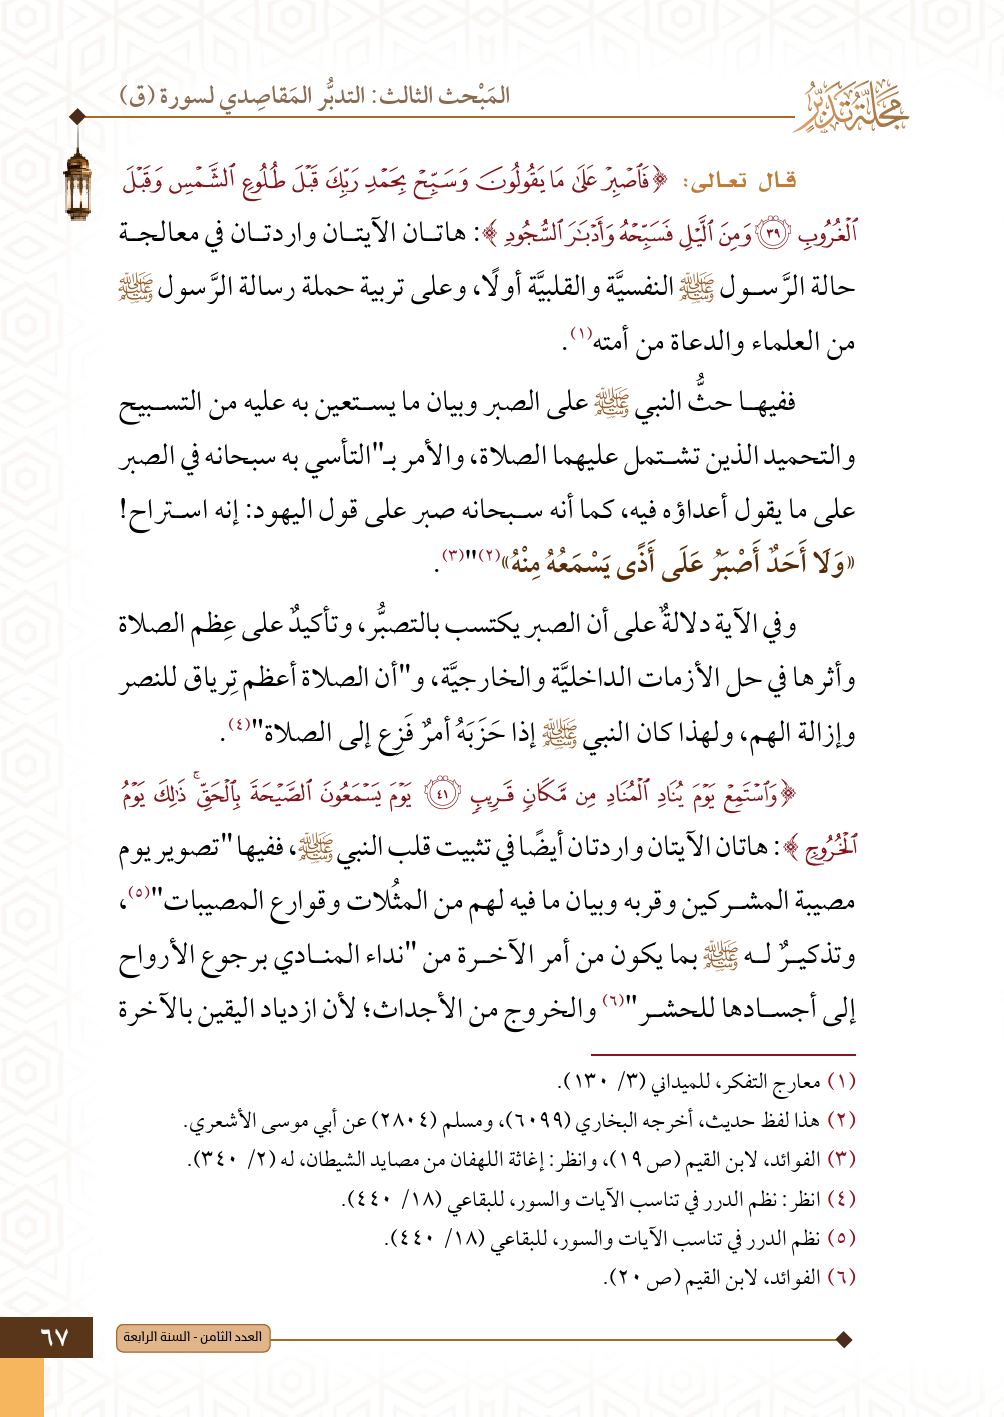 المَبْحث الثالث: التدبُّر المَقاصِدي لسورة (ق)
مجلة تدبر
قال تعالى: ﴿فَٱصْبِرْ عَلَىٰ مَا يَقُولُونَ وَسَبِّحْ بِحَمْدِ رَبِّكَ قَبْلَ طُلُوعِ ٱلشَّمْسِ وَقَبْلَ
ٱلْغُرُوبِ ٣٩ وَمِنَ ٱلَّيْلِ فَسَبِّحْهُ وَأَدْبَٰرَ ٱلسُّجُودِ﴾: هاتـان الآيتـان واردتـان في معالجـة
حالة الرَّسـول ﷺ النفسيَّة والقلبيَّة أولًا، وعلى تربية حملة رسالة الرَّسول ﷺ
من العلماء والدعاة من أمته(١).
ففيهـا حثُّ النبي ﷺ على الصبر وبيان ما يسـتعين به عليه من التسـبيح
والتحميد الذين تشـتمل عليهما الصلاة، والأمر بـ"التأسي به سبحانه في الصبر
على ما يقول أعداؤه فيه، كما أنه سـبحانه صبر على قول اليهود: إنه اسـتراح!
«وَلَا أَحَدٌ أَصْبَرُ عَلَى أَذًى يَسْمَعُهُ مِنْهُ»(٢)"(٣).
وفي الآية دلالةٌ على أن الصبر يكتسب بالتصبُّر، وتأكيدٌ على عِظم الصلاة
وأثرها في حل الأزمات الداخليَّة والخارجيَّة، و"أن الصلاة أعظم تِرياق للنصر
وإزالة الهم، ولهذا كان النبي ﷺ إذا حَزَبَهُ أمرٌ فَزِع إلى الصلاة"(٤).
﴿وَٱسْتَمِعْ يَوْمَ يُنَادِ ٱلْمُنَادِ مِن مَّكَانٍ قَرِيبٍ ٤١ يَوْمَ يَسْمَعُونَ ٱلصَّيْحَةَ بِٱلْحَقِّ ۚ ذَٰلِكَ يَوْمُ
ٱلْخُرُوجِ﴾: هاتان الآيتان واردتان أيضًا في تثبيت قلب النبي ﷺ، ففيها "تصوير يوم
مصيبة المشـركين وقربه وبيان ما فيه لهم من المثُلات وقوارع المصيبات"(٥)،
وتذكيـرٌ لـه ﷺ بما يكون من أمر الآخـرة من "نداء المنـادي برجوع الأرواح
إلى أجسـادها للحشـر"(٦) والخروج من الأجداث؛ لأن ازدياد اليقين بالآخرة
(١) معارج التفكر، للميداني (٣/ ١٣٠).
(٢) هذا لفظ حديث، أخرجه البخاري (٦٠٩٩)، ومسلم (٢٨٠٤) عن أبي موسى الأشعري.
(٣) الفوائد، لابن القيم (ص ١٩)، وانظر: إغاثة اللهفان من مصايد الشيطان، له (٢/ ٣٤٠).
(٤) انظر: نظم الدرر في تناسب الآيات والسور، للبقاعي (١٨/ ٤٤٠).
(٥) نظم الدرر في تناسب الآيات والسور، للبقاعي (١٨/ ٤٤٠).
(٦) الفوائد، لابن القيم (ص ٢٠).
العدد الثامن - السنة الرابعة
٦٧